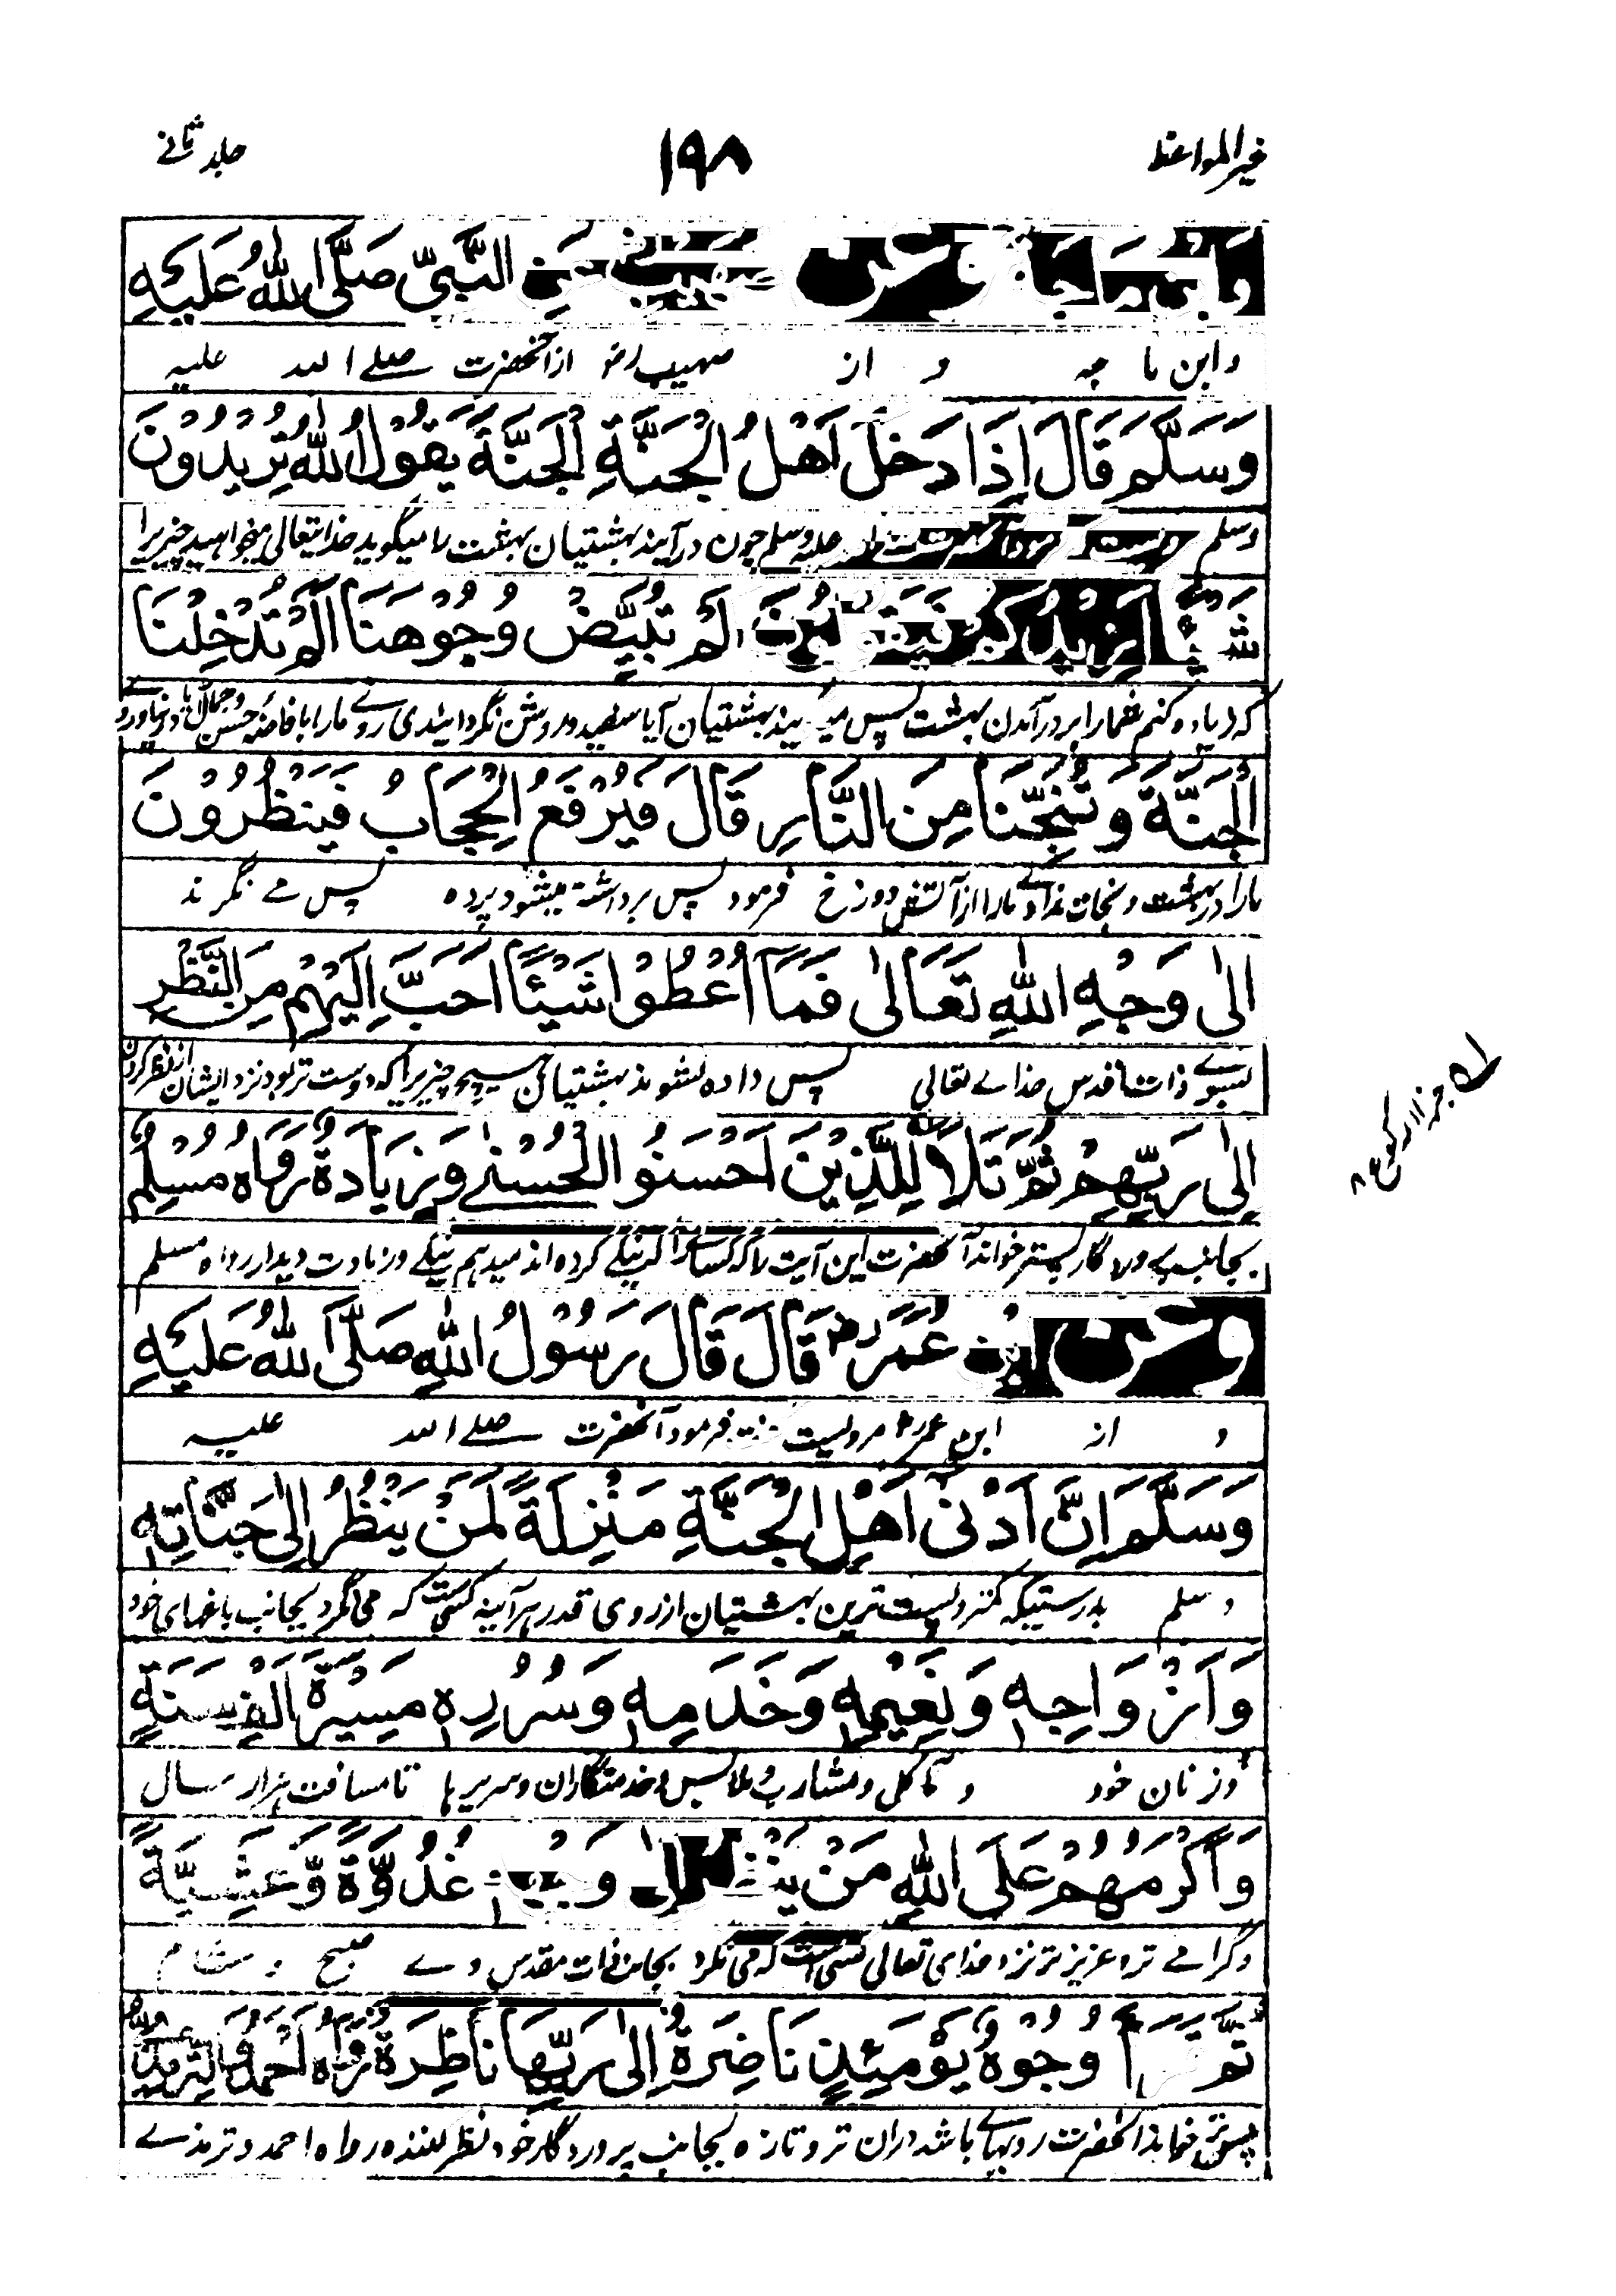 خیر المواعظ
۱۹۸
جلد ثانے
النَّبِیِّ صَلَّی اللّٰهُ عَلَیْهِ
وابن ما جه و از صهیب رضو ازآنحضرت صلے الله علیه
وَسَلَّمَ قَالَ اِذَا دَخَلَ اَهْلُ الْجَنَّةِ الْجَنَّةَ یَقُوْلُ اللّٰهُ تُرِیْدُوْنَ
وسلم علیه وسلم چون درآیند بهشتیان بهشت را میگوید خدایتعالی میخواهید چیزیرا
شَیْئًا اَزِیْدُكُمْ فَیَقُوْلُوْنَ اَلَمْ تُبَیِّضْ وُجُوْهَنَا اَلَمْ تُدْخِلْنَا
که زیاده کنم شمارا بر درآمدن بهشت پس میگویند بهشتیان آیا سفید و روشن نگردانیدی روے مارا بافاضهٔ حسن وجمال آیا در نیاوردے
الْجَنَّةَ وَتُنَجِّنَا مِنَ النَّارِ قَالَ فَیُرْفَعُ الْحِجَابُ فَیَنْظُرُوْنَ
مارا در بهشت و نجات ندادے مارا ازآتش دوزخ فرمود پس برداشته میشود پرده پس مے نگرند
اِلٰی وَجْهِ اللّٰهِ تَعَالٰی فَمَآ اُعْطُوْا شَیْئًا اَحَبَّ اِلَیْهِمْ مِنَ النَّظْرِ
بسوے ذات اقدس خداے تعالی پس داده نشوند بهشتیان هیچ چیزیرا که دوست تر بود نزد ایشان از نظر کردن
اِلٰی رَبِّهِمْ ثُمَّ تَلَا لِلَّذِیْنَ اَحْسَنُوا الْحُسْنٰے وَزِیَادَةٌ رَوَاهُ مُسْلِمٌ
بجانب پروردگار پستر خواند آنحضرت این آیت را که کسانیرا که نیکے کرده اند میدهم نیکے و زیادت دیدار رواه مسلم
وَعَنِ ابْنِ عُمَرَ رض قَالَ قَالَ رَسُوْلُ اللّٰهِ صَلَّی اللّٰهُ عَلَیْهِ
و از ابن عمر رض مرویست فرمود آنحضرت صلے الله علیه
وَسَلَّمَ اِنَّ اَدْنٰی اَهْلِ الْجَنَّةِ مَنْزِلَةً لَمَنْ یَنْظُرُ اِلٰی جَنَّاتِهٖ
وسلم بدرستیکه کمتر و پست ترین بهشتیان ازروی قدر هرآینه کسی ست که می نگرد بجانب باغهای خود
وَاَزْوَاجِهٖ وَنَعِیْمِهٖ وَخَدَمِهٖ وَسُرُرِهٖ مَسِیْرَةَ اَلْفِ سَنَةٍ
وزنان خود و مآکل و مشارب و ملابس و خدمتگاران و سریرها تا مسافت هزار سال
وَاَكْرَمُهُمْ عَلَی اللّٰهِ مَنْ یَنْظُرُ اِلٰی وَجْهِهٖ غُدْوَةً وَّعَشِیَّةً
وگرامے تر و عزیز تر نزد خدای تعالی کسی است که می نگرد بجانب ذات مقدس وے صبح و شام
ثُمَّ قَرَاَ وُجُوْهٌ یَوْمَئِذٍ نَاضِرَةٌ اِلٰی رَبِّهَا نَاظِرَةٌ رَوَاهُ اَحْمَدُ وَالتِّرْمِذِیُّ
پستر خواند آنحضرت رویهاے باشد دران تر و تازه بجانب پروردگار خود نظر کننده رواه احمد و ترمذے